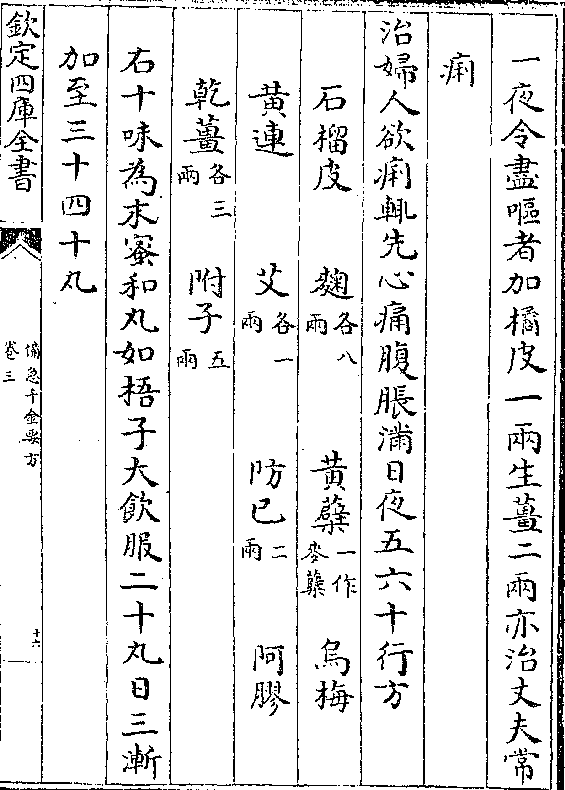 一夜令盡嘔者加橘皮一兩生薑二兩亦治丈夫常
痢
治婦人欲痢輒先心痛腹脹滿日夜五六十行方
石榴皮 麹各八兩 黄蘗一作麥蘖 烏梅
黄連 艾各一兩 防已二兩 阿膠
乾薑各三兩 附子五兩
右十味為末蜜和丸如梧子大飲服二十丸日三漸
加至三十四十丸
欽定四庫全書 備急千金要方卷三 十六